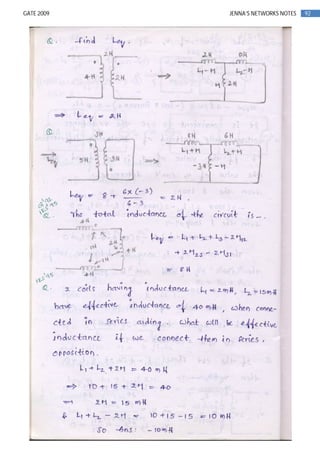 GATE 2009 JENNA'S NETWORKS NOTES 92
Q. Find Leq.
2H 2H 0H
4H 2H L1-M L2-M
M 2H
⇒ Leq = 2H
Q. 3H 8H 6H
L1+M L2+M
Leq 5H 3H -3H -M
Leq = 8 + 6x(-3) / 6-3 = 2H.
Q. The total inductance of the circuit is -.
Leq = L1 + L2 + L3 - 2M12
+ 2M23 - 2M31
4H = 8H
Q. 2 coils having inductance L1 = 2mH, L2 = 15mH
have effective inductance of 40mH, when conne-
cted in series aiding. What will be effective
inductance if we connect them in series.
opposition.
L1 + L2 + 2M = 40 mH
⇒ 10 + 15 + 2M = 40
2M = 15 mH
& L1 + L2 - 2M = 10 + 15 - 15 = 10 mH
So Ans: - 10mH